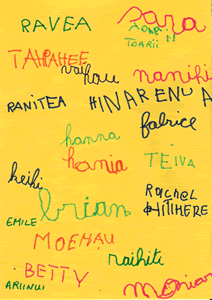 RAVEA
sara
TOARII
TAHPAHEE
vaihau
nanihi
RANITEA
HINARENUA
fabrice
hanna
hania
TEIVA
keihi
brian
Rachel
HITIHERE
EMILE
MOEHAU
raihiti
BETTY
ARIINUI